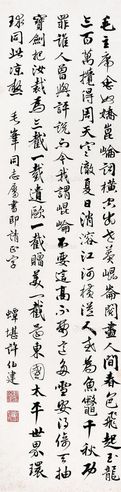 毛主席念奴嬌崑崙詞橫空出世莽崑崙閱盡人間春色飛起玉龍
三百萬攪得周天寒徹夏日消溶江河橫溢人或為魚鱉千秋功
罪誰人曾與評說而今我謂崑崙不要這高不要這多雪安得倚天抽
寶劍把汝裁為三截一截遺歐一截贈美一截還東國太平世界環
球同此涼熱 毛峯同志屬書即請正字
蟫堪許伯建